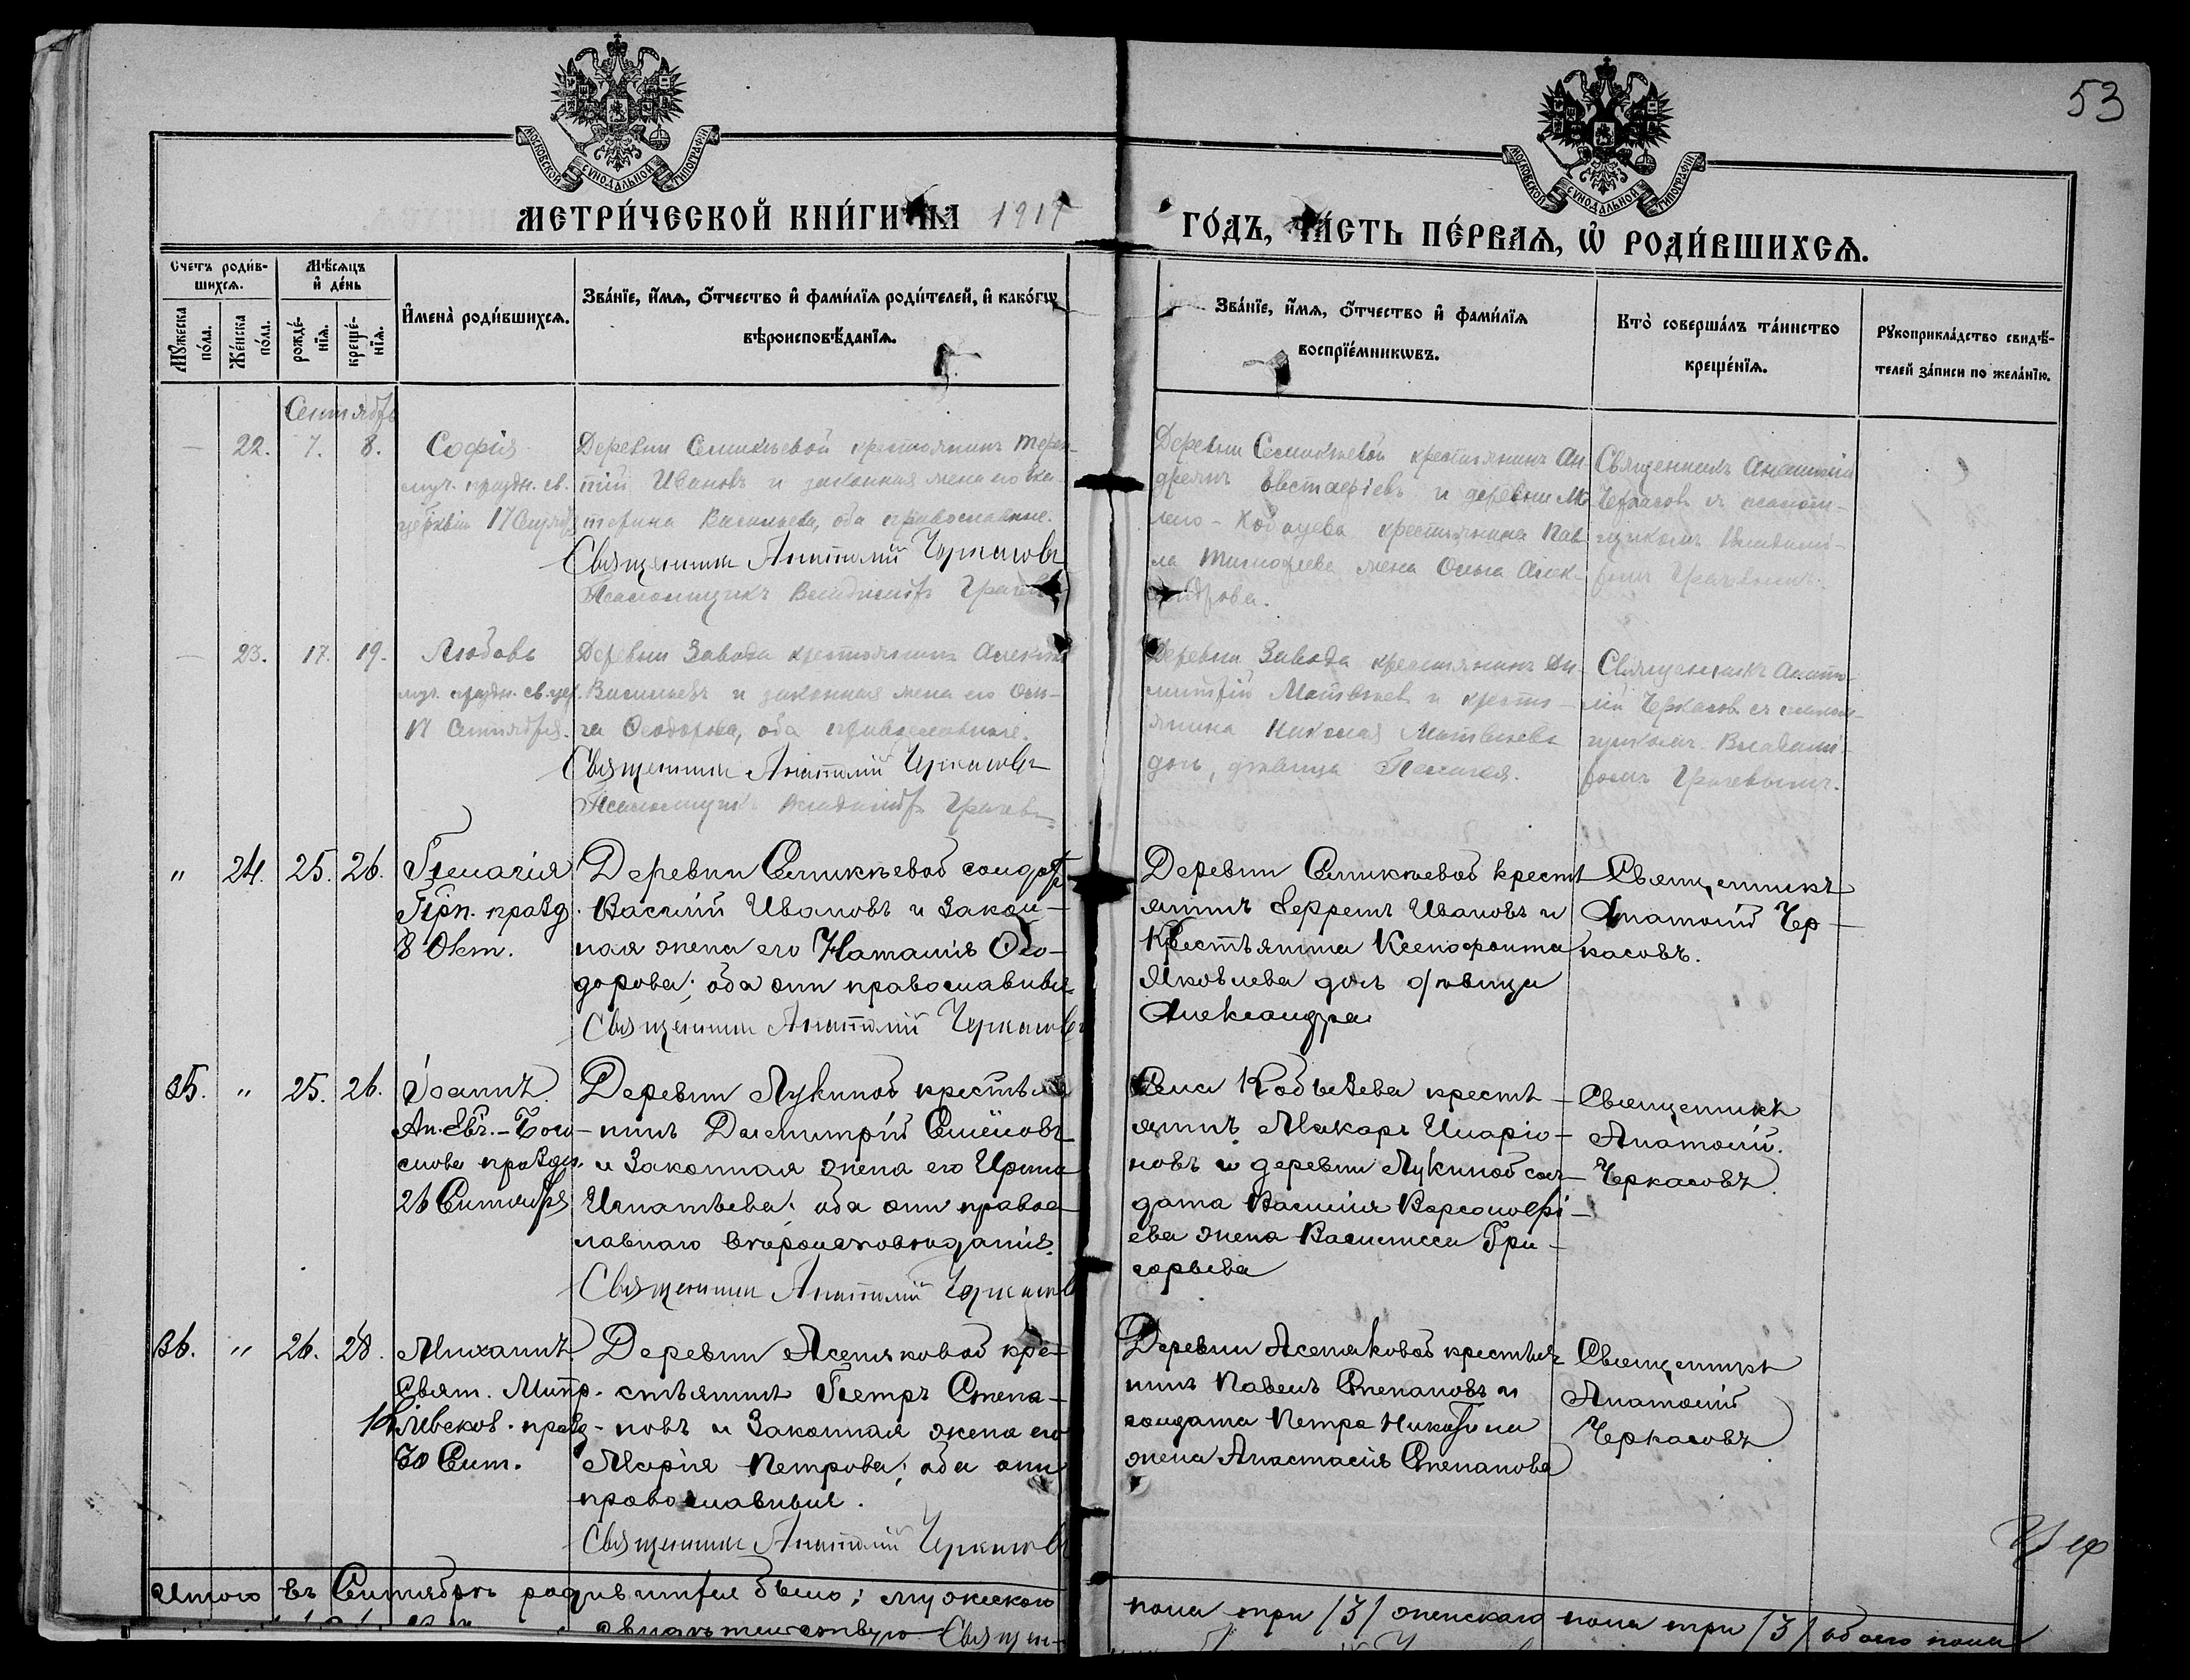 53
МОСКОВСКОЙ СѴНОДАЛЬНОЙ ТИПОГРАФІИ
МОСКОВСКОЙ СѴНОДАЛЬНОЙ ТИПОГРАФІИ
МЕТРИ́ЧЕСКОЙ КНИ́ГИ НА 1914 ГО́ДЪ, ЧА́СТЬ ПЕ́РВАѦ, Ѡ҆ РОДИ́ВШИХСѦ.
Счетъ роди́в-
шихсѧ.
Мꙋжеска по́ла.
Же́нска по́ла.
Мѣ́сѧцъ
и҆ де́нь
рожде́-
нїѧ.
креще́-
нїѧ.
И҆мена̀ роди́вшихсѧ.
Зва́нїе, и҆́мѧ, ѻ҆́тчество и҆ фами́лїѧ роди́телей, и҆ како́гѡ
вѣроисповѣ́данїѧ.
Зва́нїе, и҆́мѧ, ѻ҆́тчество и҆ фами́лїѧ
воспрїе́мникѡвъ.
Кто̀ соверша́лъ та́инство
креще́нїѧ.
Рꙋкоприкла́дство свидѣ́-
телей за́писи по жела́нїю.
Сентябрь
— 22. 7. 8. Софія
муч. праздн. св.
церковію 17 Сентяб.
Деревни Селикѣевой крестьянинъ Терен-
тій Ивановъ и законная жена его Ека-
терина Васильева, оба православные.
Священникъ Анатолій Черкасовъ
Псаломщикъ Владиміръ Грачевъ
Деревни Селикѣевой крестьянинъ Ан-
дреянъ Евстафіевъ и деревни
крестьянина Пав-
ла Тимофеева жена Ольга Алек-
сандрова.
Священникъ Анатолій
Черкасовъ съ псалом-
щикомъ Владимі-
ромъ Грачевымъ.
— 23. 17. 19. Любовь
муч. праздн. св. цер.
17 Сентября.
Деревни Завода крестьянинъ Алексѣй
Васильевъ и законная жена его Оль-
га Ѳеодорова, оба православные.
Священникъ Анатолій Черкасовъ
Псаломщикъ Владиміръ Грачевъ
Деревни Завода крестьянинъ Ди-
митрій Матвѣевъ и кресть-
янина Николая Матвѣева
дочь, дѣвица Пелагея.
Священникъ Анато-
лій Черкасовъ съ псалом-
щикомъ Владимі-
ромъ Грачевымъ.
" 24. 25. 26. Пелагія
Прп. празд.
8 Окт.
Деревни Селикѣевой солдатъ
Василій Ивановъ и закон-
ная жена его Наталія Ѳео-
дорова; оба они православныя
Священникъ Анатолій Черкасовъ
Деревни Селикѣевой крест-
янинъ Ефремъ Ивановъ и
Крестьянина Ксенофонта
Яковлева дочь дѣвица
Александра
Священникъ
Анатолій Чер-
касовъ.
35. " 25. 26. Іоаннъ.
Ап. Евг. - Бого-
слова праздн.
26 Сентября
Деревни Лукиной крестья-
нинъ Димитрій Семёновъ
и законная жена его Ирина
Игнатьева; оба они правос-
лавнаго вѣроисповѣданія.
Священникъ Анатолій Черкасовъ
Села Кобызева кресть-
янинъ Макаръ Иларіо-
новъ и деревни Лукиной сол-
дата Василія Варсонофі-
ева жена Василисса Гри-
горьева
Священникъ
Анатолій.
Черкасовъ.
36. " 26. 28. Михаилъ.
Свят. Митр.
Кіевсков. празд.
30 Сент.
Деревни Асетяковой кре-
стьянинъ Петръ Степа-
новъ и законная жена его
Марія Петрова; оба они
православныя.
Священникъ Анатолій Черкасовъ
Деревни Асетяковой крестья-
нинъ Павелъ Степановъ и
солдата Петра Никитина
жена Анастасія Степанова
Священникъ
Анатолій
Черкасовъ
Итого въ Сентябрѣ родившихся было; мужескаго пола три /3/ женскаго пола три /3/ обоего пола
Священ-